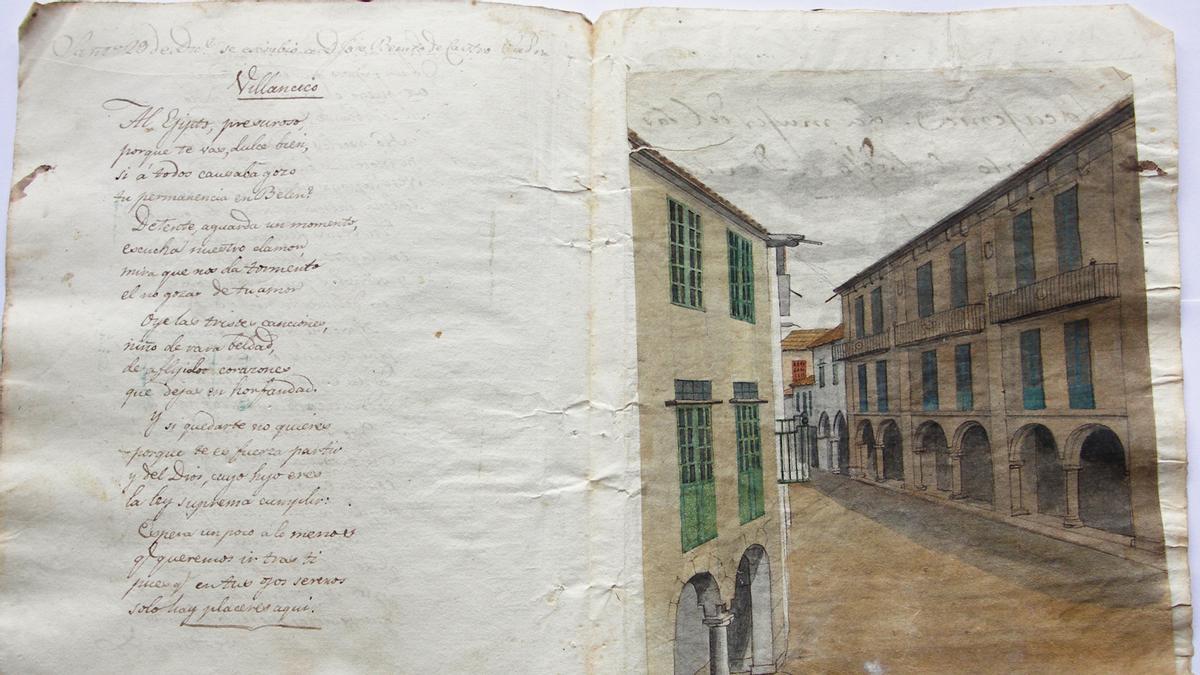 29 de se de Castro
Villancico
Al Egipto, presuroso,
porque te vas, dulce bien,
si á todos causaba gozo
tu permanencia en Belen?
Detente, aguarda un momento,
escucha nuestro clamor,
mira que nos da tormento
el no gozar de tu amor
Oye las tristes canciones,
niño de rara beldad,
de aflijidos corazones
que dejas en horfandad.
Y si quedarte no quieres
porque te es fuerza partir
y del Dios, cuyo hijo eres
la ley suprema cumplir:
Espera un poco a lo menos
q.e queremos ir tras ti
pues q.e en tus ojos serenos
solo hay placeres aqui.